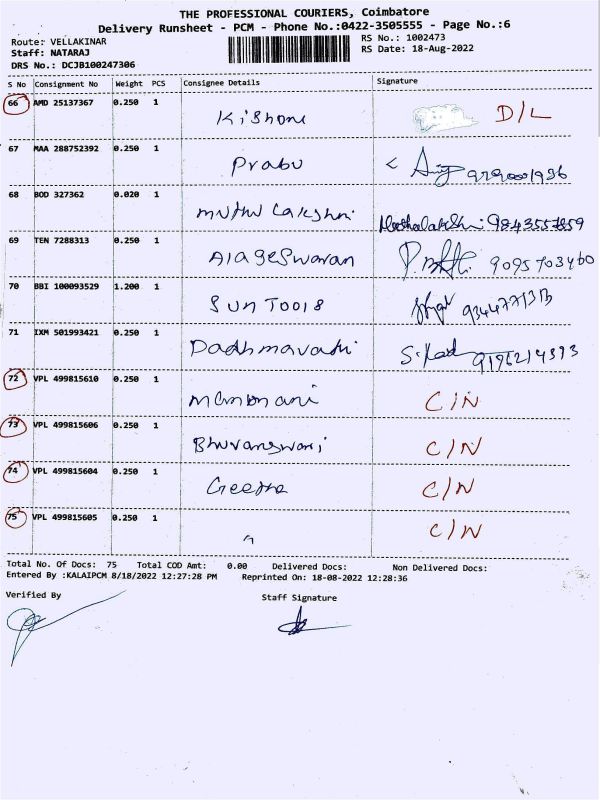 THE PROFESSIONAL COURIERS, Coimbatore
Delivery Runsheet - PCM - Phone No.:0422-3505555 - Page No.:6
Route: VELLAKINAR RS No.: 1002473
Staff: NATARAJ RS Date: 18-Aug-2022
DRS No.: DCJB100247306
S No Consignment No Weight PCS Consignee Details Signature
66 AMD 25137367 0.250 1 Kishore D/L
67 MAA 288752392 0.250 1 Prabu
68 BOD 327362 0.020 1 muthu Lakshmi 9843557859
69 TEN 7288313 0.250 1 Alageswaran 9095703460
70 BBI 100093529 1.200 1 Sun Tools
71 IXM 501993421 0.250 1 Padhmavathi 9196214393
72 VPL 499815610 0.250 1 C/N
73 VPL 499815606 0.250 1 Bhuvaneswari C/N
74 VPL 499815604 0.250 1 Geetha C/N
75 VPL 499815605 0.250 1 " C/N
Total No. Of Docs: 75 Total COD Amt: 0.00 Delivered Docs: Non Delivered Docs:
Entered By :KALAIPCM 8/18/2022 12:27:28 PM Reprinted On: 18-08-2022 12:28:36
Verified By Staff Signature